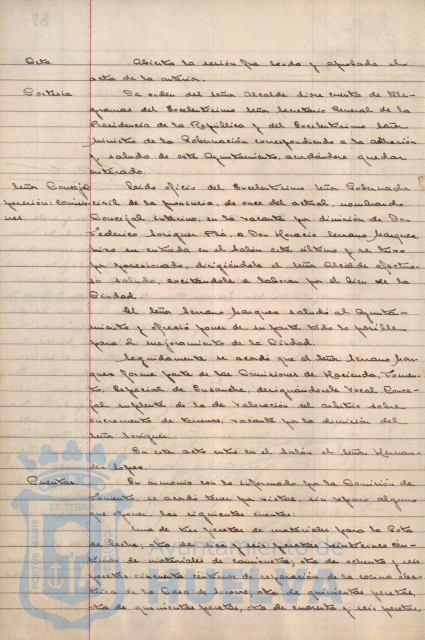 Acta. Abierta la sesión fue leida y aprobada el
acta de la anterior.
Cortesía De orden del señor Alcalde dióse cuenta de tele-
gramas del Excelentísimo señor Secretario General de la
Presidencia de la República y del Excelentísimo señor
Ministro de la Gobernación correspondiendo a la adhesión
y saludo de este Ayuntamiento, acordándose quedar
enterado.
Señor Concejal Leido oficio del Excelentísimo señor Gobernador
posesión: comisio- civil de la provincia, de once del actual, nombrando
nes. Concejal interino, en la vacante por dimisión de Don
Federico a Don Horacio Serrano Marquez,
hizo su entrada en el salón este último y se tuvo
por posesionado, dirigiéndole el señor Alcalde afectuo-
so saludo, excitándole a laborar por el bien de la
Ciudad.
El señor Serrano Marquez saludó al Ayunta-
miento y ofreció poner de su parte todo lo posible
para el mejoramiento de la Ciudad.
Seguidamente se acordó que el señor Serrano Mar-
quez forme parte de las Comisiones de Hacienda, Fomen-
to, Especial de Ensanche, designándosele Vocal Conce-
jal suplente de la de Valoración del arbitrio sobre
incremento de terrenos, vacante por la dimisión del
señor
En este acto entró en el salón el señor Hernan-
dez López.
Cuentas. En armonía con lo informado por la Comisión de
Fomento, se acordó tener por vistas, sin reparo alguno
que oponer, las siguientes cuentas:
Una de tres pesetas de materiales para la Gota
de leche, otra de pesetas veintitrés cén-
timos de materiales de camionetas, otra de ochenta y seis
pesetas cincuenta céntimos de reparación de la cocina eléc-
trica de la Casa de Socorro, otra de quinientas pesetas,
otra de quinientas pesetas, otra de cuarenta y seis pesetas,
Ayuntamiento de
HUELVA
PORTUS MARIS
ET TERRE